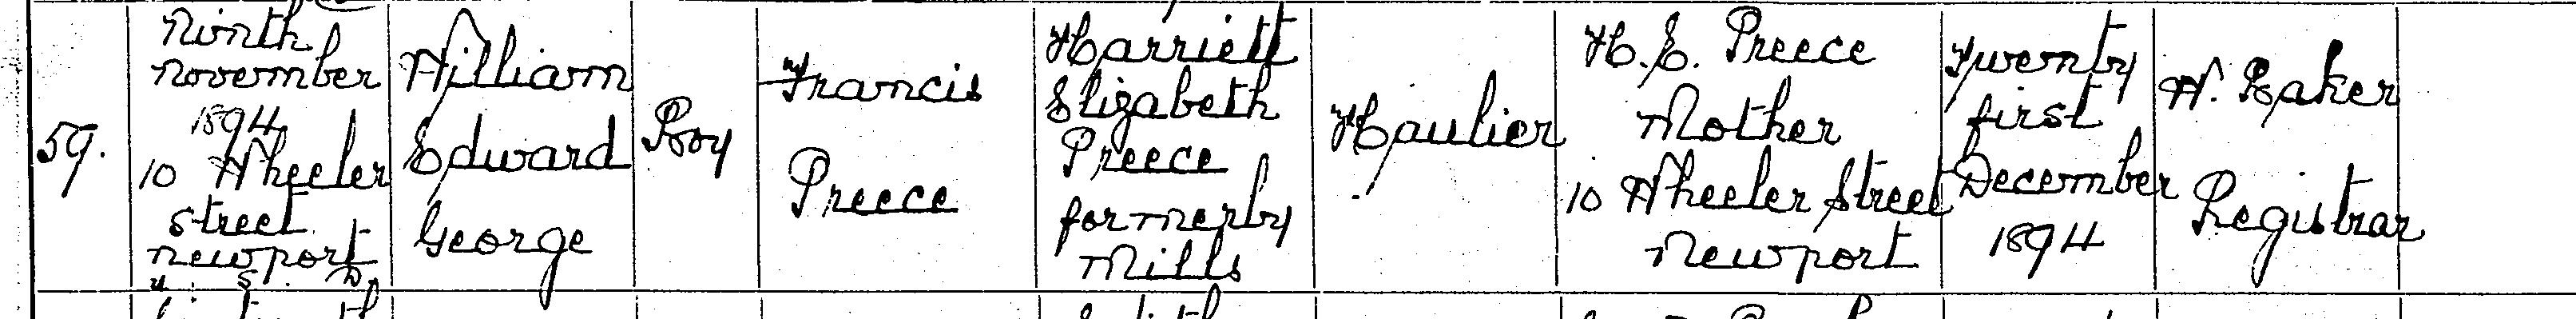 59.
Ninth
November
1894
10 Wheeler
Street
Newport
U. S. D.
William
Edward
George
Boy
Francis
Preece
Harriett
Elizabeth
Preece
formerly
Mills
Haulier
H. E. Preece
Mother
10 Wheeler Street
Newport
Twenty
first
December
1894
W. Baker
Registrar